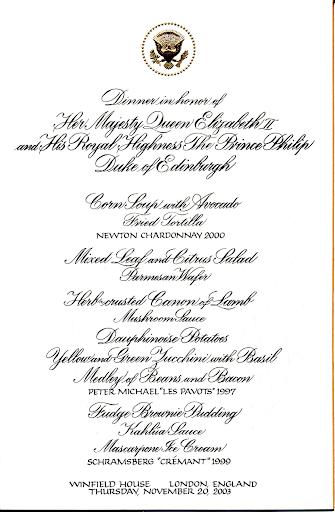 Dinner in honor of
Her Majesty Queen Elizabeth II
and His Royal Highness The Prince Philip
Duke of Edinburgh
Corn Soup with Avocado
Fried Tortilla
NEWTON CHARDONNAY 2000
Mixed Leaf and Citrus Salad
Parmesan Wafer
Herb-crusted Canon of Lamb
Mushroom Sauce
Dauphinoise Potatoes
Yellow and Green Zucchini with Basil
Medley of Beans and Bacon
PETER MICHAEL "LES PAVOTS" 1997
Fudge Brownie Pudding
Kahlúa Sauce
Mascarpone Ice Cream
SCHRAMSBERG "CRÉMANT" 1999
WINFIELD HOUSE LONDON, ENGLAND
THURSDAY, NOVEMBER 20, 2003